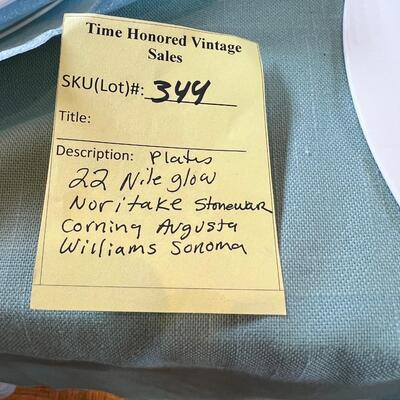 Time Honored Vintage
Sales
SKU(Lot)#: 344
Title:
Description: Plates
22 Nile glow
Noritake Stoneware
Corning Augusta
Williams Sonoma